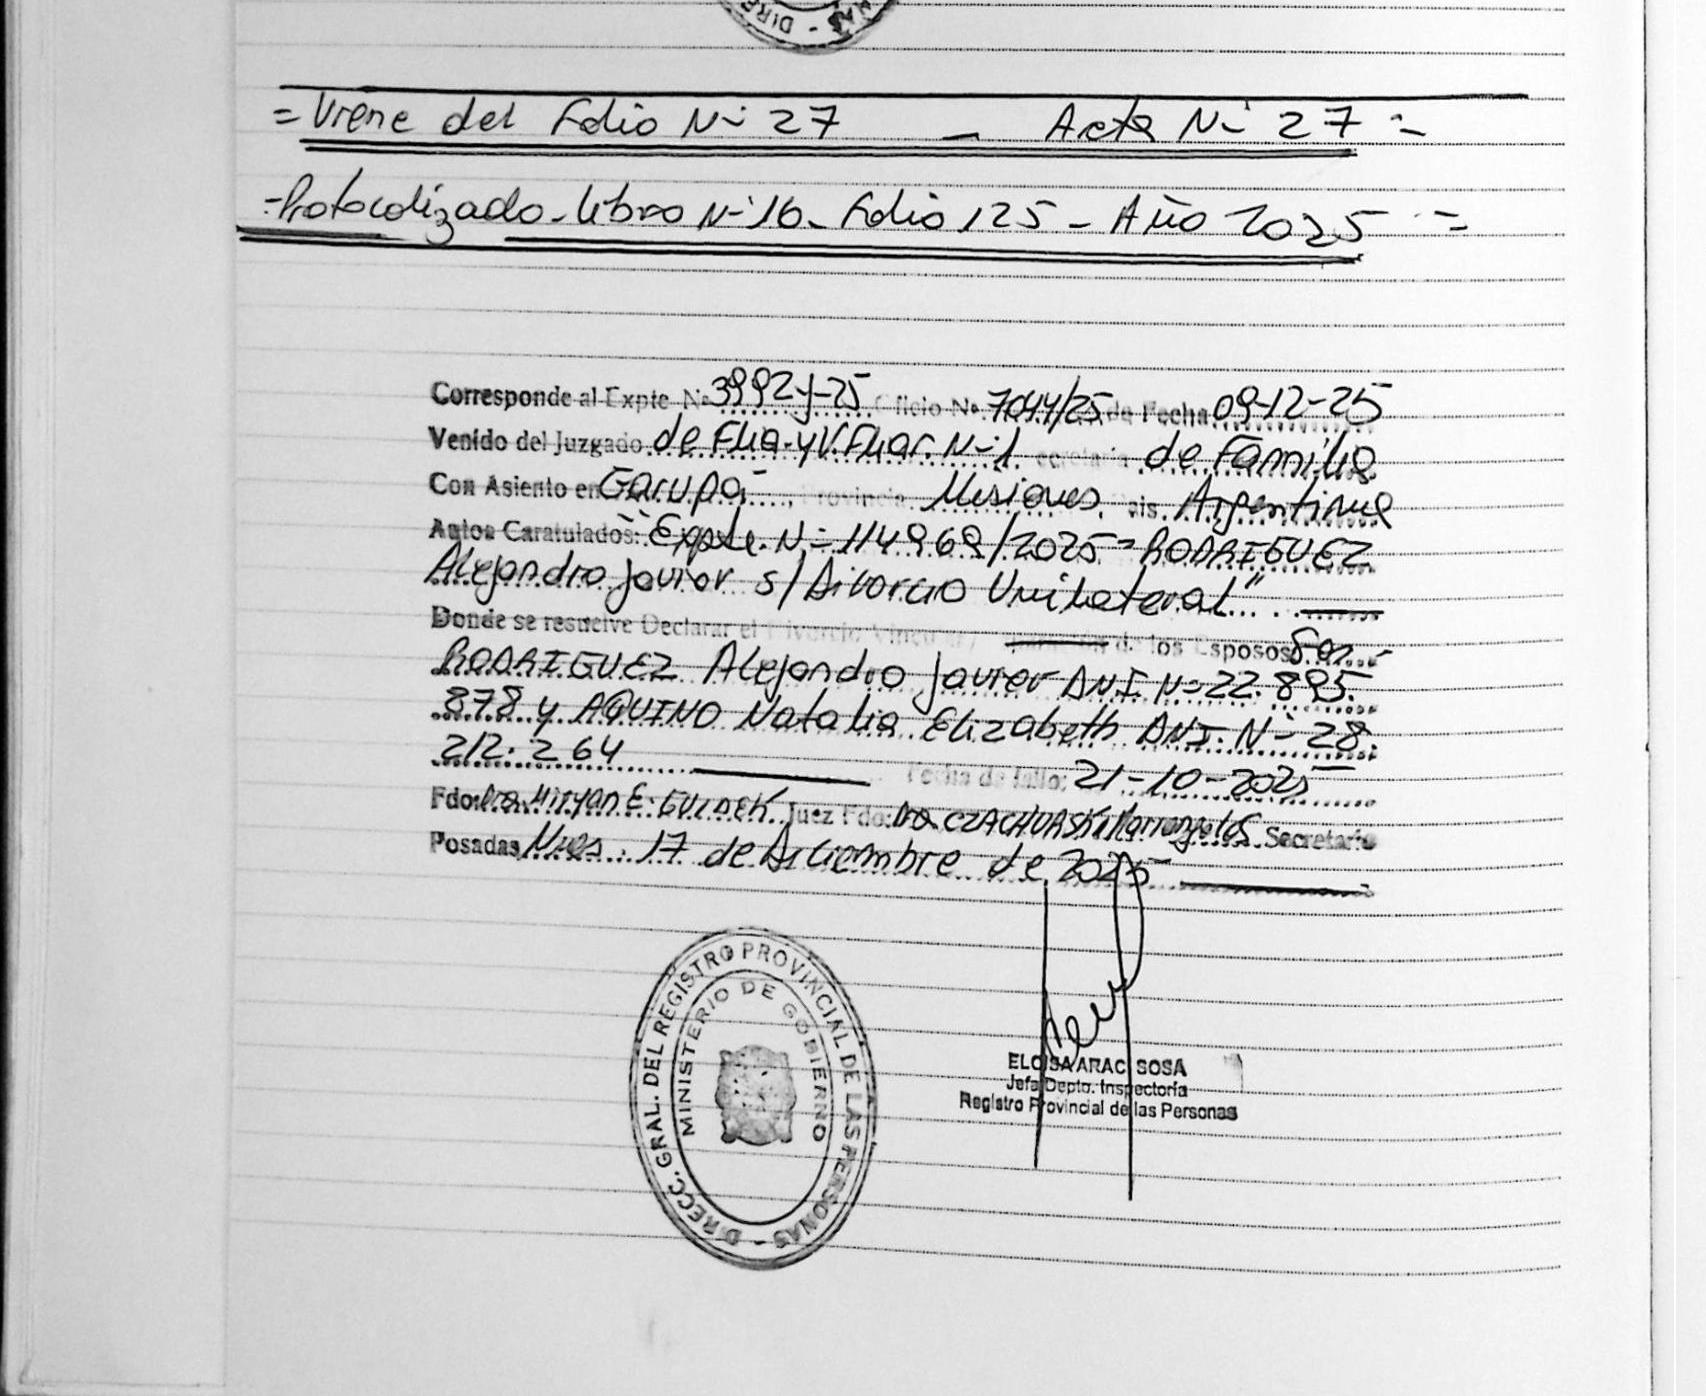 DIRE - NAS
= Viene del Folio Nº 27 - Acta Nº 27 =
- Protocolizado - Libro Nº 16 - Folio 125 - Año 2025 =
Corresponde al Expte Nº 3992-J-25 Oficio Nº 7044/25 de Fecha 09-12-25
Venido del Juzgado de Flia. y V. Fliar. Nº 1 Secretaria de Familia
Con Asiento en Garupá, Provincia Misiones, Pais Argentina
Autos Caratulados: "Expte. Nº 114969/2025 - RODRIGUEZ
Alejandro Javier s/ Divorcio Unilateral"
Donde se resuelve Declarar el Divorcio Vincular / de los Esposos
RODRIGUEZ Alejandro Javier DNI Nº 22.895.
878 y AQUINO Natalia Elizabeth DNI. Nº 28.
212.264 Fecha de fallo: 21-10-2025
Fdo: Dra. Miryan E. Juez Fdo: Secretario
Posadas, Mnes. 17 de Diciembre de 2025
DIRECC. GRAL. DEL REGISTRO PROVINCIAL DE LAS PERSONAS -
MINISTERIO DE GOBIERNO
ELOISA ARACI SOSA
Jefa Depto. Inspectoría
Registro Provincial de las Personas